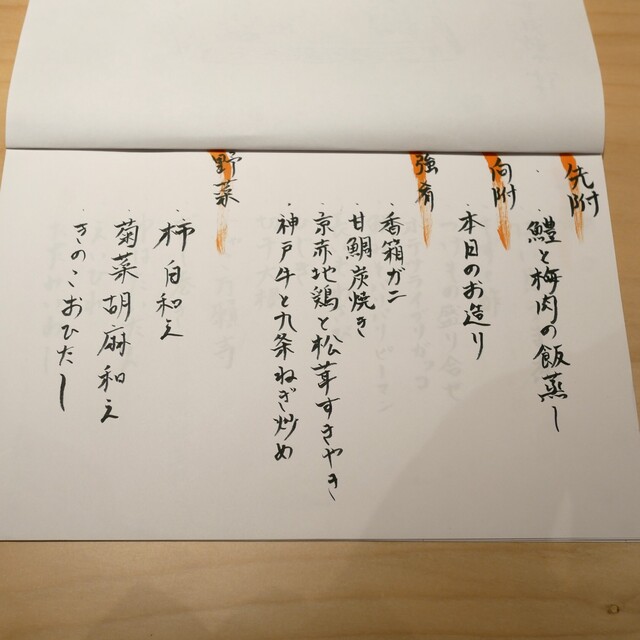 先附
・鱧と梅肉の飯蒸し
向附
・本日のお造り
強肴
・香箱ガニ
・甘鯛炭焼き
・京赤地鶏と松茸すきやき
・神戸牛と九条ねぎ炒め
野菜
・柿白和え
・菊菜胡麻和え
・きのこおひたし